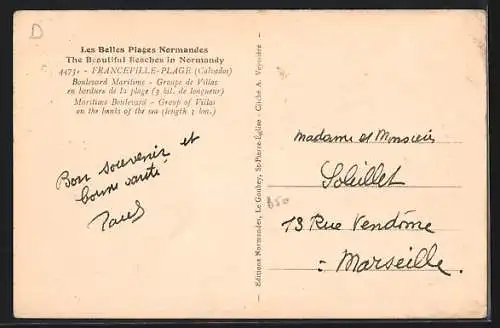 D
Les Belles Plages Normandes
The Beautiful Beaches in Normandy
4473. - FRANCEVILLE-PLAGE (Calvados)
Boulevard Maritime - Groupe de Villas
en bordure de la plage (3 kil. de longueur)
Maritime Boulevard - Group of Villas
on the banks of the sea (length 3 km.)
Bon souvenir et
bonne santé
Editions Normandes, Le Goubey, St-Pierre-Eglise - Cliché A. Voysnière
Madame et Monsieur
Soleillet
650
13 Rue Vendôme
Marseille.